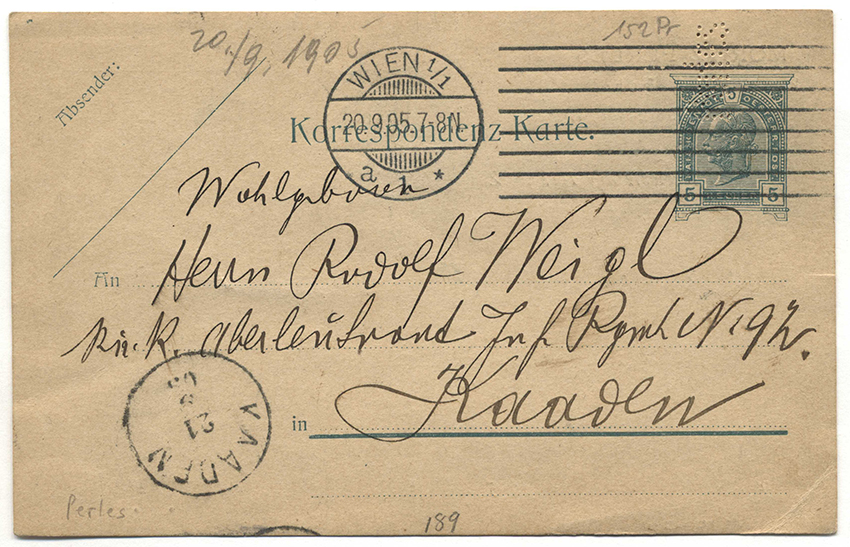 20./9. 1905
152 Pr
Absender:
WIEN 1/1
20.9.05.7-8N
a 1 *
Korrespondenz-Karte.
5
5 5
Wohlgeboren
An Herrn Rodolf Weigl
k.u.k. Oberleutnant Inf. Rgmt N. 92.
in Kaaden
KAADEN
21
9
05
Perles.
189